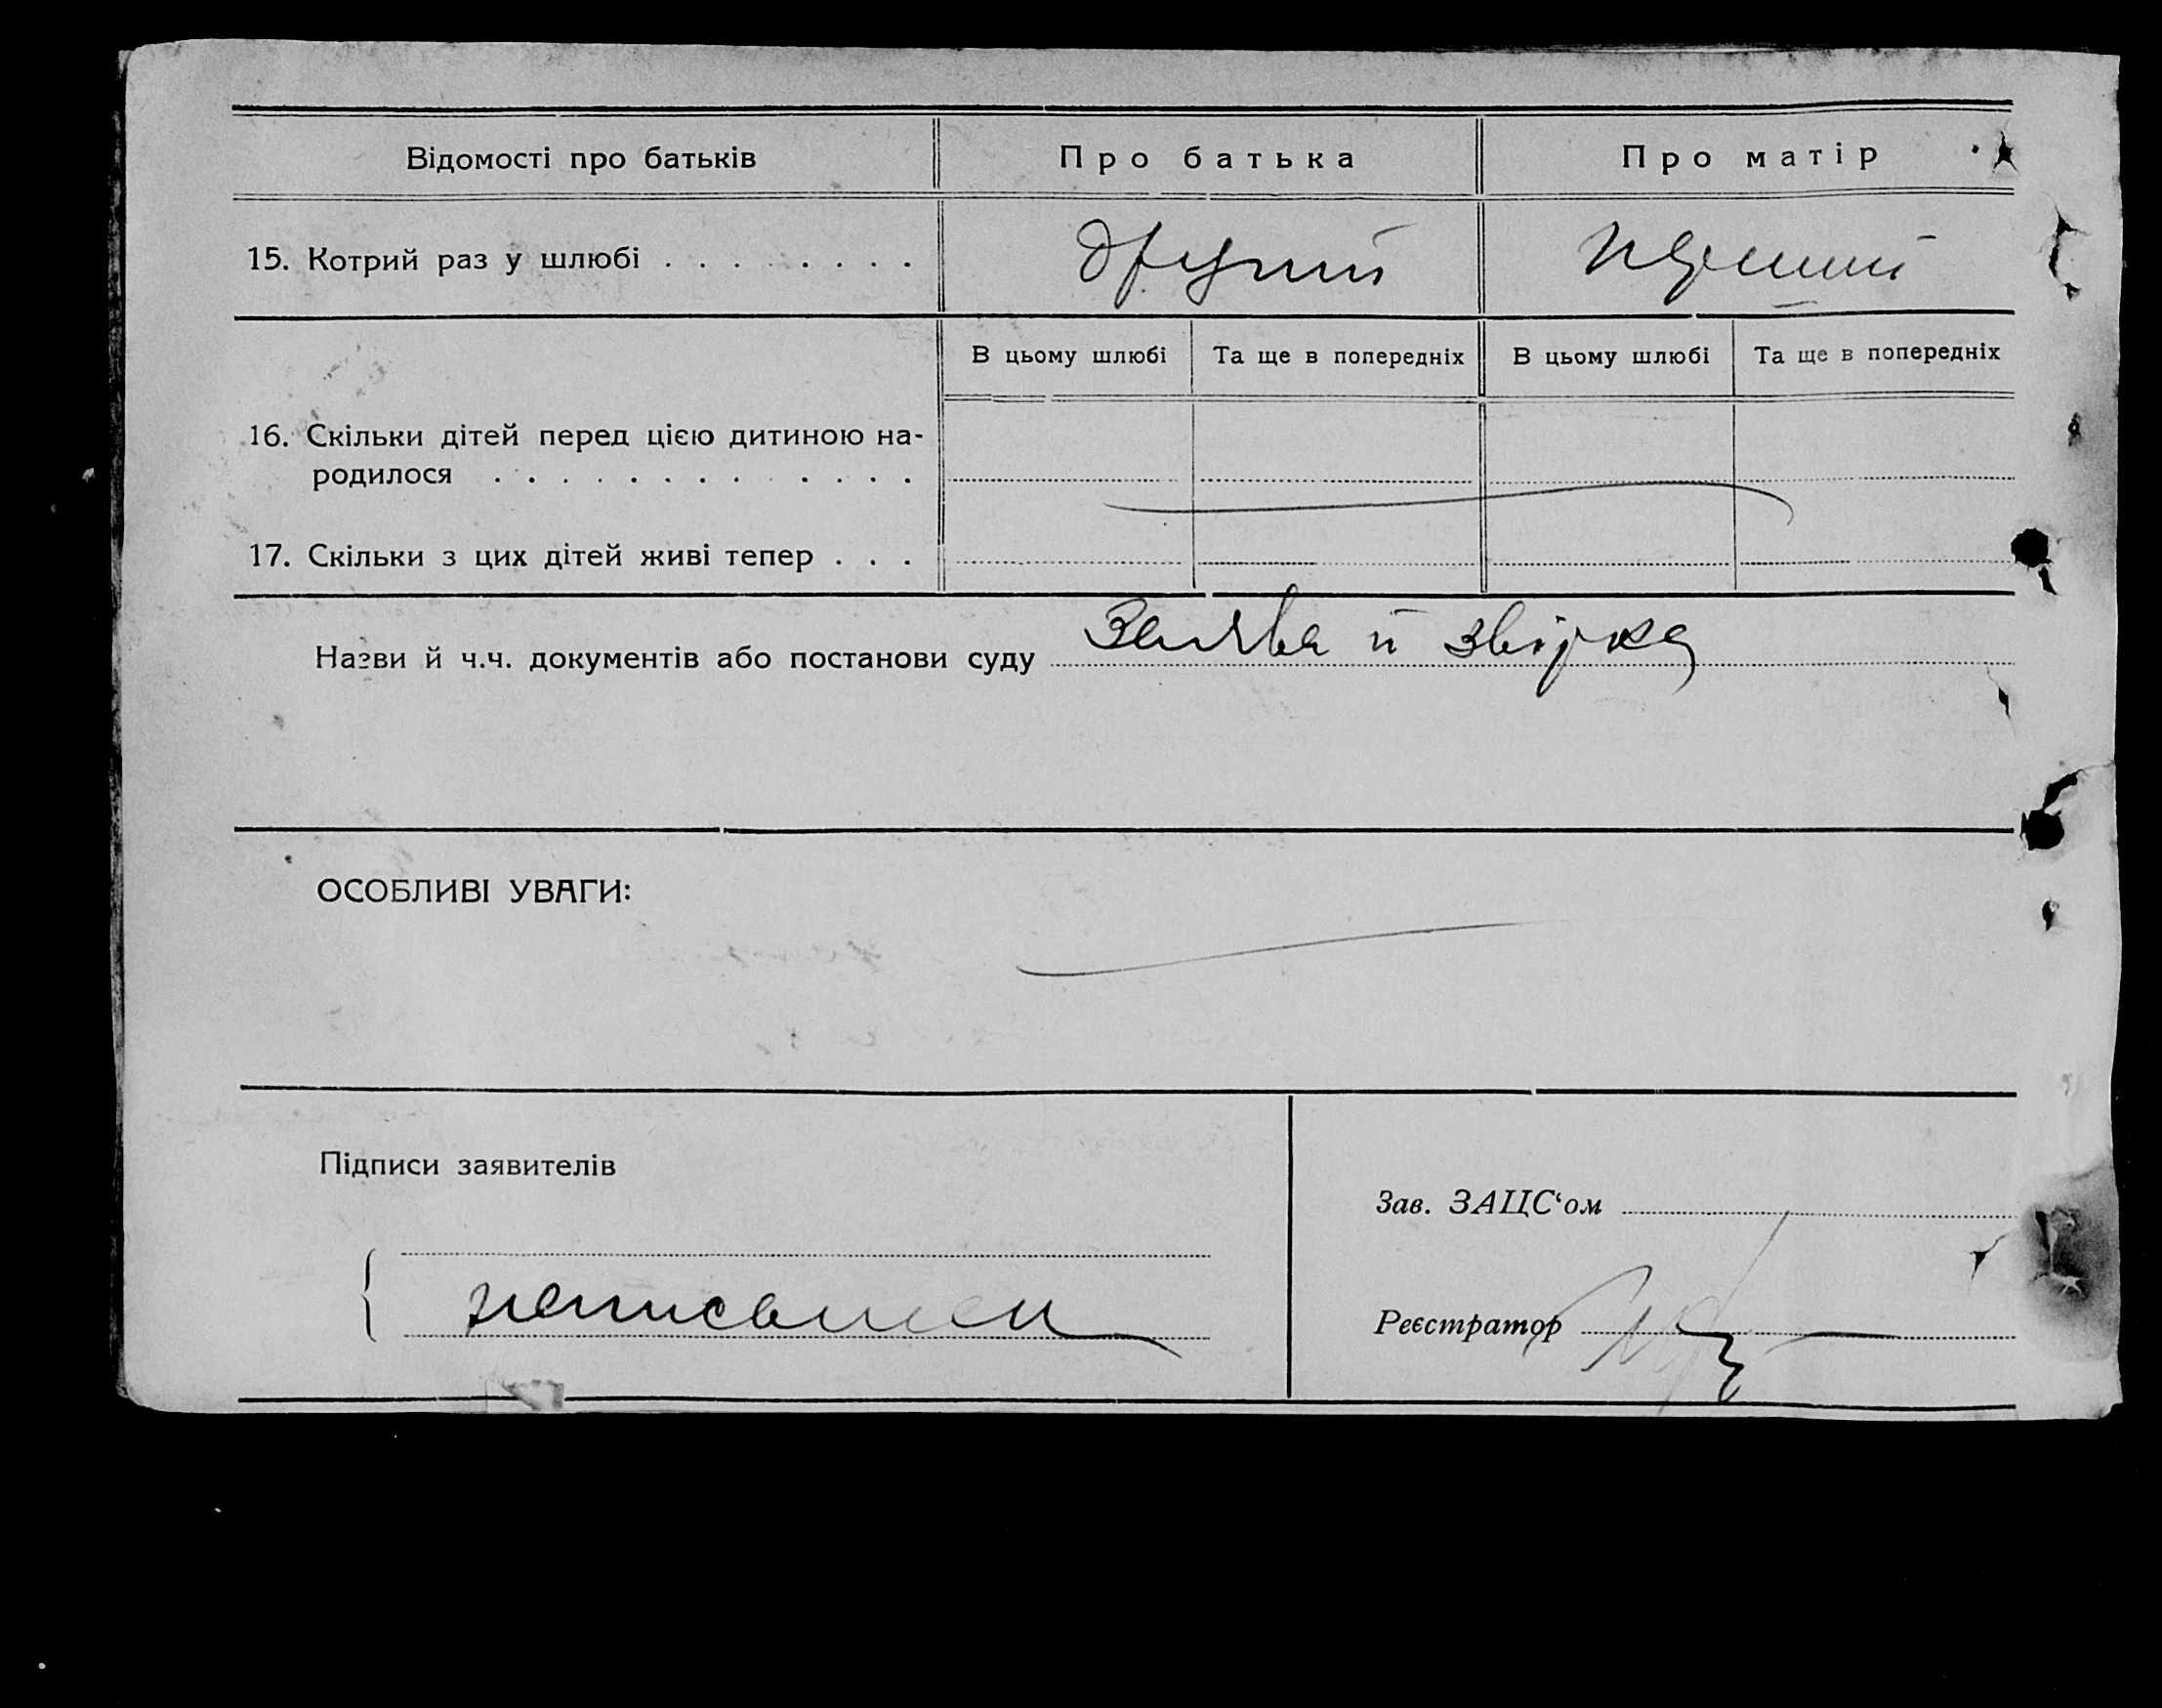 Відомості про батьків Про батька Про матір
15. Котрий раз у шлюбі . . . . . . . . другий перший
В цьому шлюбі Та ще в попередніх В цьому шлюбі Та ще в попередніх
16. Скільки дітей перед цією дитиною на-
родилося . . . . . . . . . . . . .
17. Скільки з цих дітей живі тепер . . .
Назви й ч.ч. документів або постанови суду Заява й звірка
ОСОБЛИВІ УВАГИ:
Підписи заявителів
Зав. ЗАЦС‘ом
Реєстратор